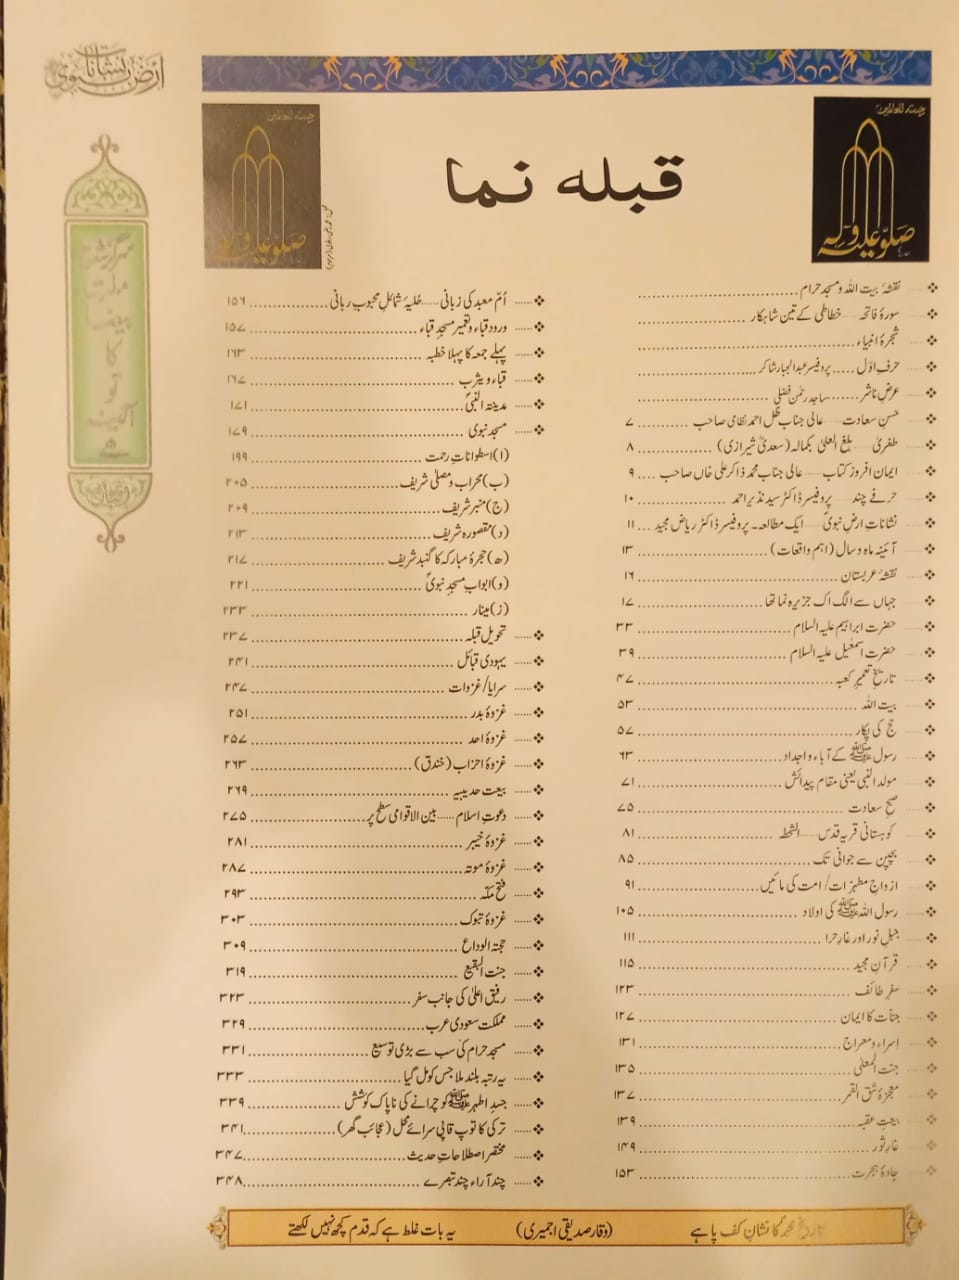 ارضِ نشاناتِ نبوی
قبلہ نما
صلّو علیہ وآلہ
صلّو علیہ وآلہ
سرگزشت
ملت
بیضا
کا
تو
آئینہ
اقبال
نقشۂ بیت اللہ و مسجد حرام
سورۂ فاتحہ ...... خطاطی کے تین شاہکار
شجرۂ انبیاء
حرفِ اوّل ...... پروفیسر عبدالجبار شاکر
عرضِ ناشر ...... ساجد رحمٰن فضلی
حسنِ سعادت ...... عالی جناب ظل احمد نظامی صاحب ۷
طغریٰ ...... بلغ العلیٰ بکمالہ (سعدیؒ شیرازی) ۸
ایمان افروز کتاب ...... عالی جناب محمد ذاکر علی خاں صاحب ۹
حرفے چند ...... پروفیسر ڈاکٹر سید نذیر احمد ۱۰
نشاناتِ ارضِ نبویؐ ...... ایک مطالعہ۔ پروفیسر ڈاکٹر ریاض مجید ۱۱
آئینہ ماہ و سال (اہم واقعات) ۱۳
نقشۂ عربستان ۱۶
جہاں سے الگ اک جزیرہ نما تھا ۱۷
حضرت ابراہیم علیہ السلام ۳۳
حضرت اسمٰعیل علیہ السلام ۳۹
تاریخِ تعمیرِ کعبہ ۴۷
بیت اللہ ۵۳
حج کی پکار ۵۷
رسول ﷺ کے آباء و اجداد ۶۳
مولد النبی یعنی مقام پیدائش ۷۱
صبحِ سعادت ۷۵
کوہستانی قریہ قدس ...... الشحطہ ۸۱
بچپن سے جوانی تک ۸۵
ازواجِ مطہرات/ امت کی مائیں ۹۱
رسول اللہ ﷺ کی اولاد ۱۰۵
جبلِ نور اور غارِ حرا ۱۱۱
قرآنِ مجید ۱۱۵
سفرِ طائف ۱۲۳
جنّات کا ایمان ۱۲۷
اسراء و معراج ۱۳۱
جنت المعلیٰ ۱۳۵
معجزۂ شق القمر ۱۳۷
بیعتِ عقبہ ۱۳۹
غارِ ثور ۱۴۹
جادۂ ہجرت ۱۵۳
اُمّ معبد کی زبانی ...... حُلیۂ شمائلِ محبوبِ ربانی ۱۵۶
ورودِ قباء و تعمیر مسجدِ قباء ۱۵۷
پہلے جمعہ کا پہلا خطبہ ۱۶۳
قباء و یثرب ۱۶۷
مدینۃ النبیؐ ۱۷۱
مسجد نبوی ۱۷۹
(ا) اسطواناتِ رحمت ۱۹۹
(ب) محراب و مصلیٰ شریف ۲۰۵
(ج) منبر شریف ۲۰۹
(د) مقصورہ شریف ۲۱۳
(ھ) حجرۂ مبارکہ کا گنبد شریف ۲۱۷
(و) ابوابِ مسجدِ نبویؐ ۲۲۱
(ز) مینار ۲۳۳
تحویلِ قبلہ ۲۳۷
یہودی قبائل ۲۴۱
سرایا/غزوات ۲۴۷
غزوۂ بدر ۲۵۱
غزوۂ احد ۲۵۷
غزوۂ احزاب (خندق) ۲۶۳
بیعت حدیبیہ ۲۶۹
دعوتِ اسلام ...... بین الاقوامی سطح پر ۲۷۵
غزوۂ خیبر ۲۸۱
غزوۂ موتہ ۲۸۷
فتح مکّہ ۲۹۳
غزوۂ تبوک ۳۰۳
حجۃ الوداع ۳۰۹
جنت البقیع ۳۱۹
رفیقِ اعلیٰ کی جانب سفر ۳۲۳
مملکت سعودی عرب ۳۲۹
مسجد حرام کی سب سے بڑی توسیع ۳۳۱
یہ رتبہ بلند ملا جس کو مل گیا ۳۳۳
جسدِ اطہر ﷺ کو چرانے کی ناپاک کوشش ۳۳۹
ترکی کا توپ قاپی سرائے محل (عجائب گھر) ۳۴۱
مختصر اصطلاحاتِ حدیث ۳۴۷
چند آراء چند تبصرے ۳۴۸
کا نشانِ کف پا ہے (وقار صدیقی اجمیری) یہ بات غلط ہے کہ قدم کچھ نہیں لکھتے